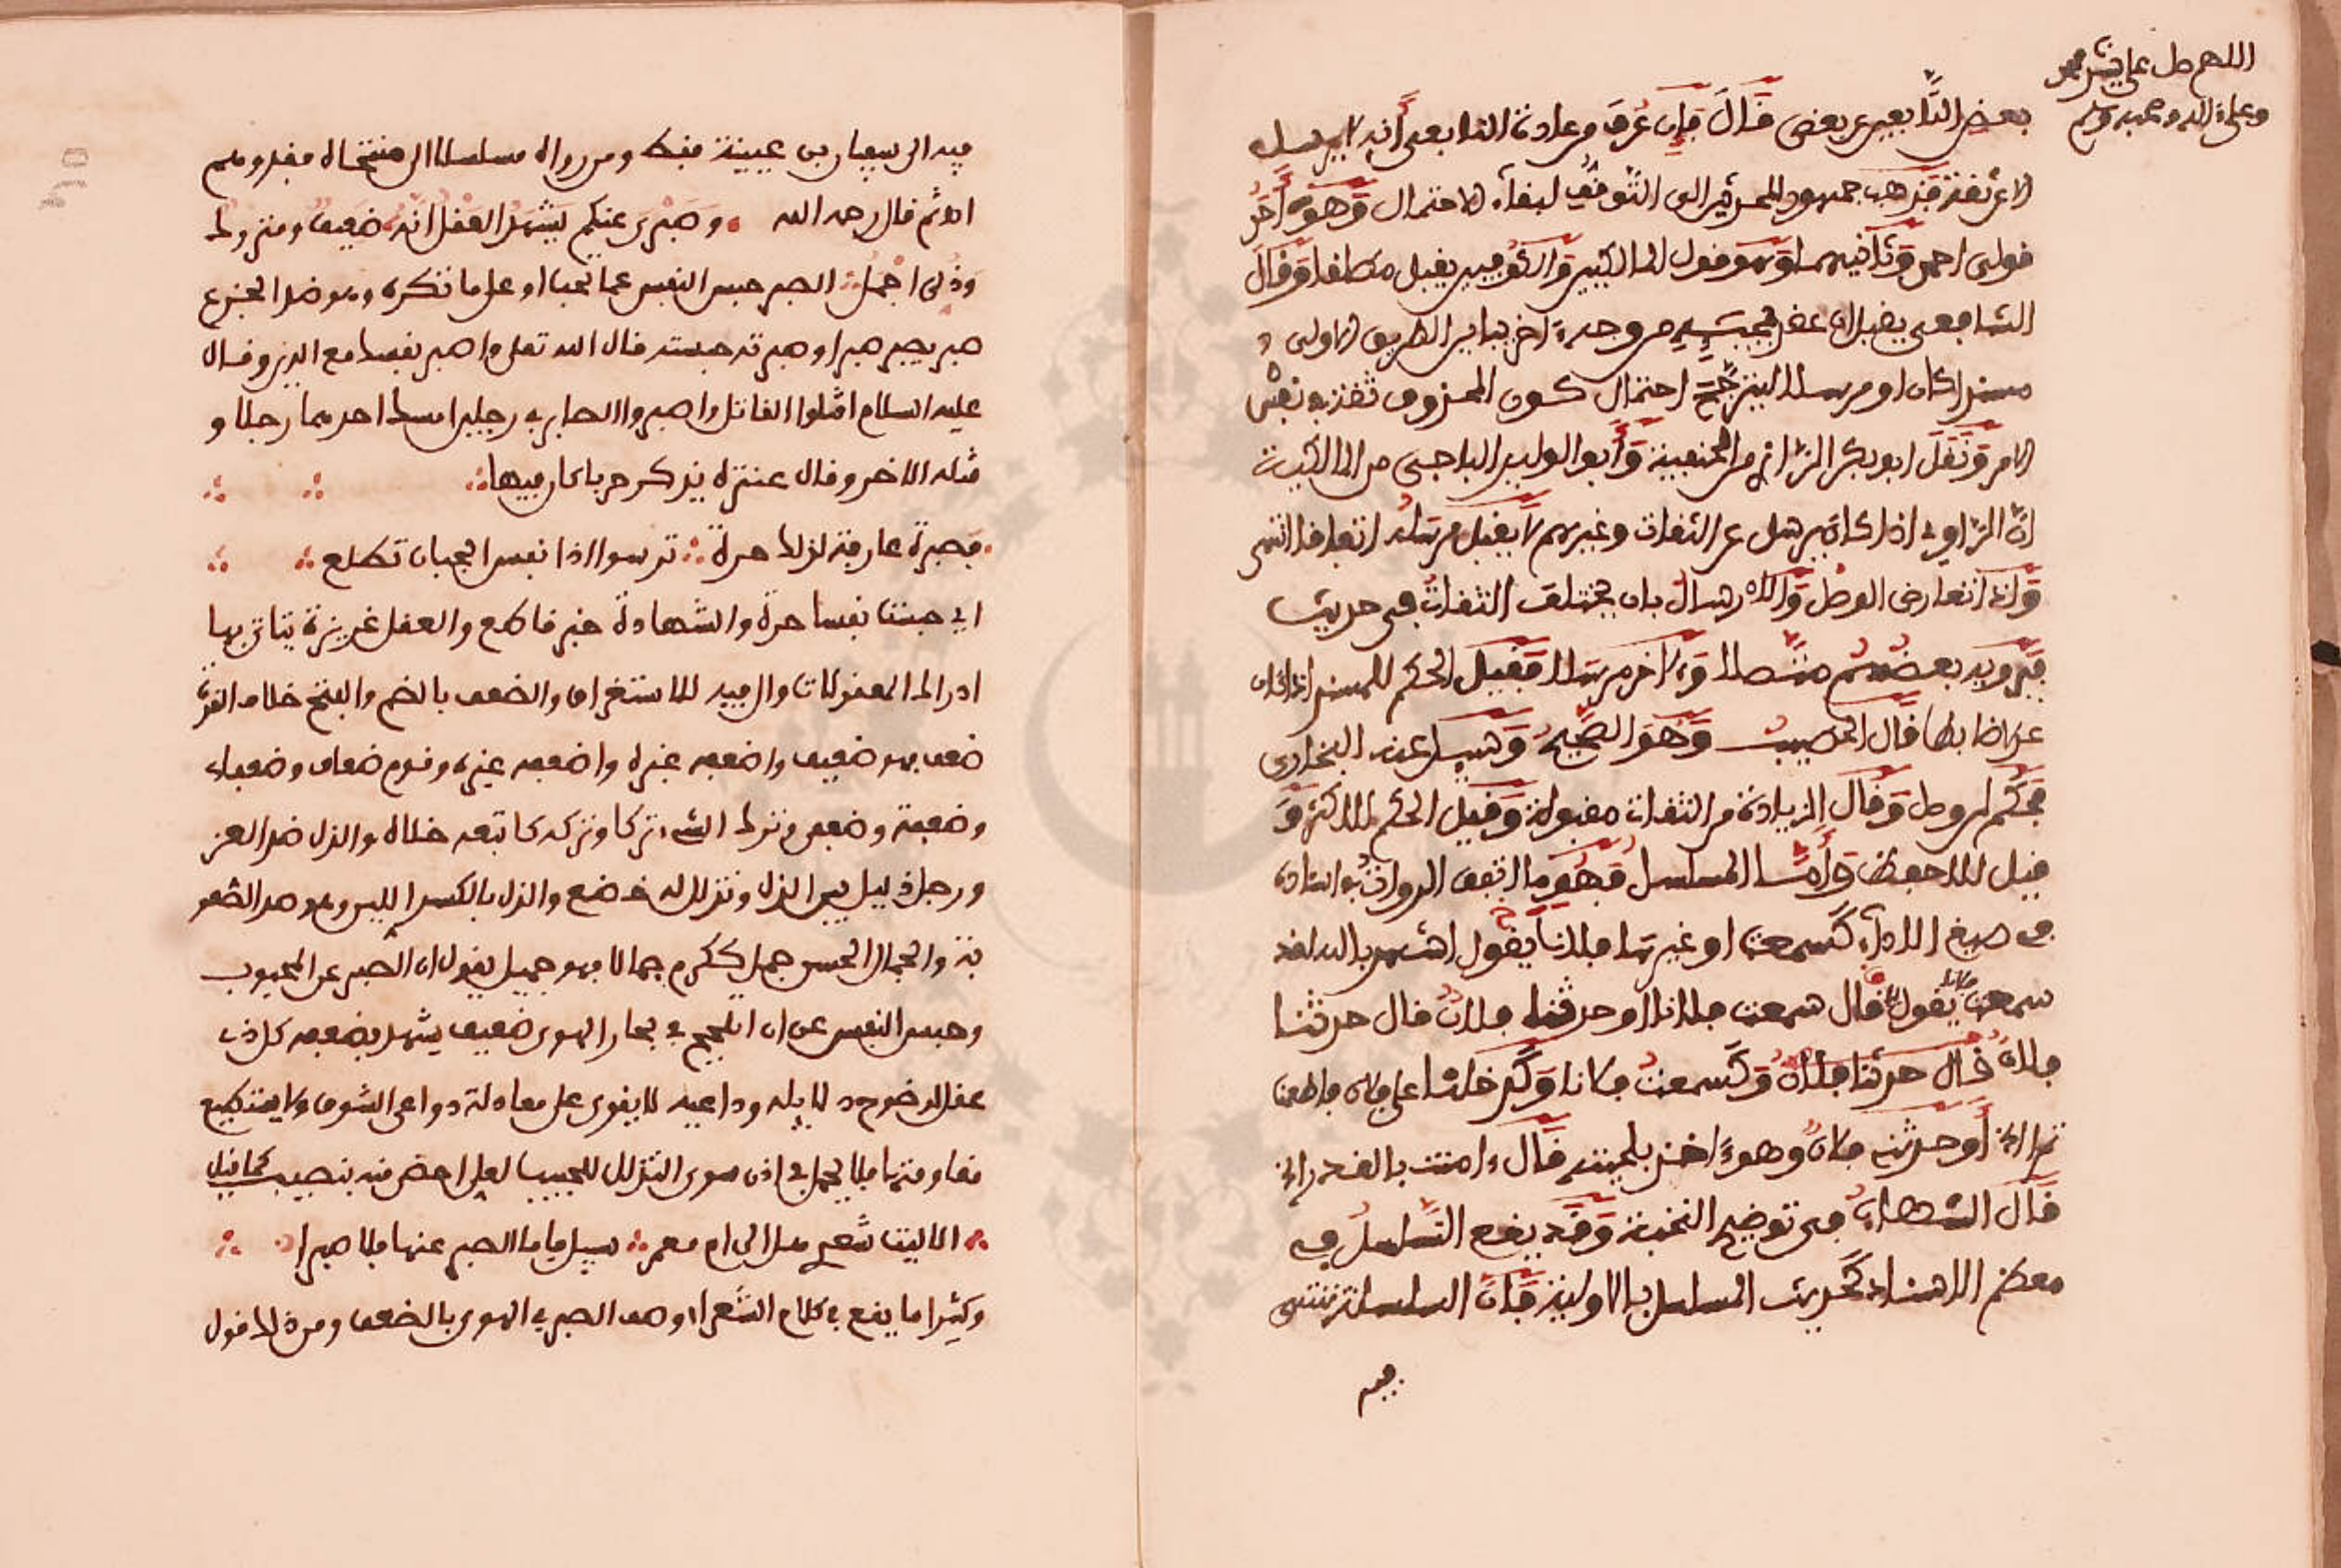 اللهم صل على
وعلى آله وصحبه وسلم
بعض التابعين عن بعض قال فإن عرف من عادة التابعي أنه لا يرسل
إلا عن ثقة فذهب جمهور المحدثين إلى التوقف لبقاء الاحتمال وهو أحد
قولي أحمد وثانيهما وهو قول المالكيين والكوفيين يقبل مطلقا وقال
الشافعي يقبل إن اعتضد بمجيئه من وجه آخر يباين الطريق الأولى
مسندا كان أو مرسلا ليترجح احتمال كون المحذوف ثقة في نفس
الأمر ونقل أبو بكر الرازي من الحنفية وأبو الوليد الباجي من المالكية
أن الراوي إذا كان يرسل عن الثقات وغيرهم لا يقبل مرسله اتفاقا انتهى
وإذا تعارض الوصل والإرسال بأن يختلف الثقات في حديث
فيرويه بعضهم متصلا وآخر مرسلا فقيل الحكم للمسند إذا كان
عدلا ضابطا قال الخطيب وهو الصحيح وسئل عنه البخاري
فحكم لمن وصل وقال الزيادة من الثقات مقبولة وقيل الحكم للأكثر و
قيل للأحفظ وأما المسلسل فهو ما اتفق الرواة بإسناده
في صيغ الأداء كسمعت أو غيرها فلانا يقول أشهد بالله لقد
سمعت فلانا يقول قال سمعت فلانا أو حدثنا فلان قال حدثنا
فلان قال حدثنا فلان وكسمعت فلانا وكدخلنا على فلان فأطعمنا
تمرا الخ أو حدثني فلان وهو آخذ بلحيته قال آمنت بالقدر الخ
قال الشهاب في توضيح النخبة وقد يقع التسلسل في
معظم الإسناد كحديث المسلسل بالأولية فإن السلسلة تنتهي
فيه
فيه إلى سفيان بن عيينة فقط ومن رواه مسلسلا إلى منتهاه فقد وهم
اه ثم قال رحمه الله وصبري عنكم يشهد العقل أنه ضعيف ومتروك
وذلي أجمل الصبر حبس النفس عما تحب أو على ما تكره وهو ضد الجزع
صبر يصبر صبرا وصبرته حبسته قال الله تعالى واصبر نفسك مع الذين وقال
عليه السلام اقتلوا القاتل واصبروا الصابر في رجلين أمسك أحدهما رجلا و
قتله الآخر وقال عنترة يذكر حربا كان فيها
فصبرت عارفة لذلك حرة ترسو إذا نفس الجبان تطلع
أي حبست نفسا حرة والشهادة خبر قاطع والعقل غريزة يتأتى بها
إدراك المعقولات وال فيه للاستغراق والضعف بالضم والفتح خلاف القوة
ضعف فهو ضعيف وأضعفه غيره وأضعفه غيره وقوم ضعاف وضعفاء
وضعفة وضعفى وترك الشيء تركا وتركه كاتبعه خلاه والذل ضد العز
ورجل ذليل بين الذل وتذلل له خضع والذل بالكسر اللين وهو ضد الصعو
بة والجمال الحسن جمل ككرم جمالا فهو جميل يقول إن الصبر عن المحبوب
وحبس النفس عن أن تلجج في بحار الهوى ضعيف يشهد بضعفه كل ذي
عقل لوضوح دلايله وداعيه لا يقوى على معادلة دواعي الشوق ولا يستطيع
مقاومتها فلا يجمل بي إذن سوى التذلل للحبيب لعلي أحض منه بنصيب كما قيل
ألا ليت شعري هل إلى أم معمر سبيل فأما الصبر عنها فلا صبرا
وكثيرا ما يقع في كلام الشعراء وصف الصبر في الهوى بالضعف ومن ذلك قول